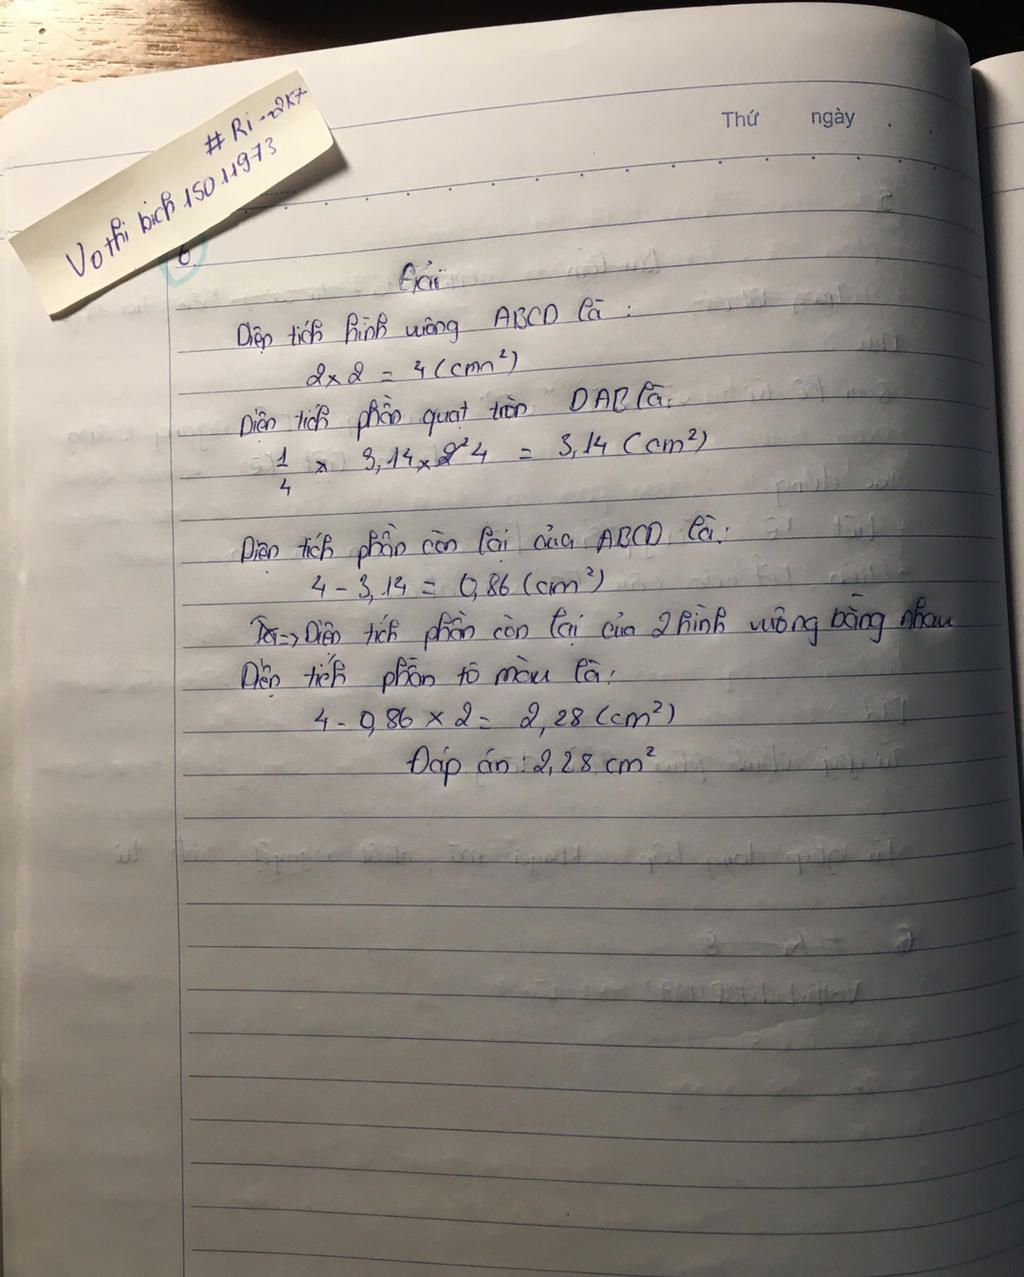 Thứ ngày
#Ri--2k7
Vothi bich 15011973
6
Giải
Diện tích hình vuông ABCD là :
2 × 2 = 4 (cm²)
Diện tích phần quạt tròn DAB là:
1/4 × 3,14 × 4 = 3,14 (cm²)
Diện tích phần còn lại của ABCD là:
4 - 3,14 = 0,86 (cm²)
=> Diện tích phần còn lại của 2 hình vuông bằng nhau
Diện tích phần tô màu là:
4 - 0,86 × 2 = 2,28 (cm²)
Đáp án : 2,28 cm²